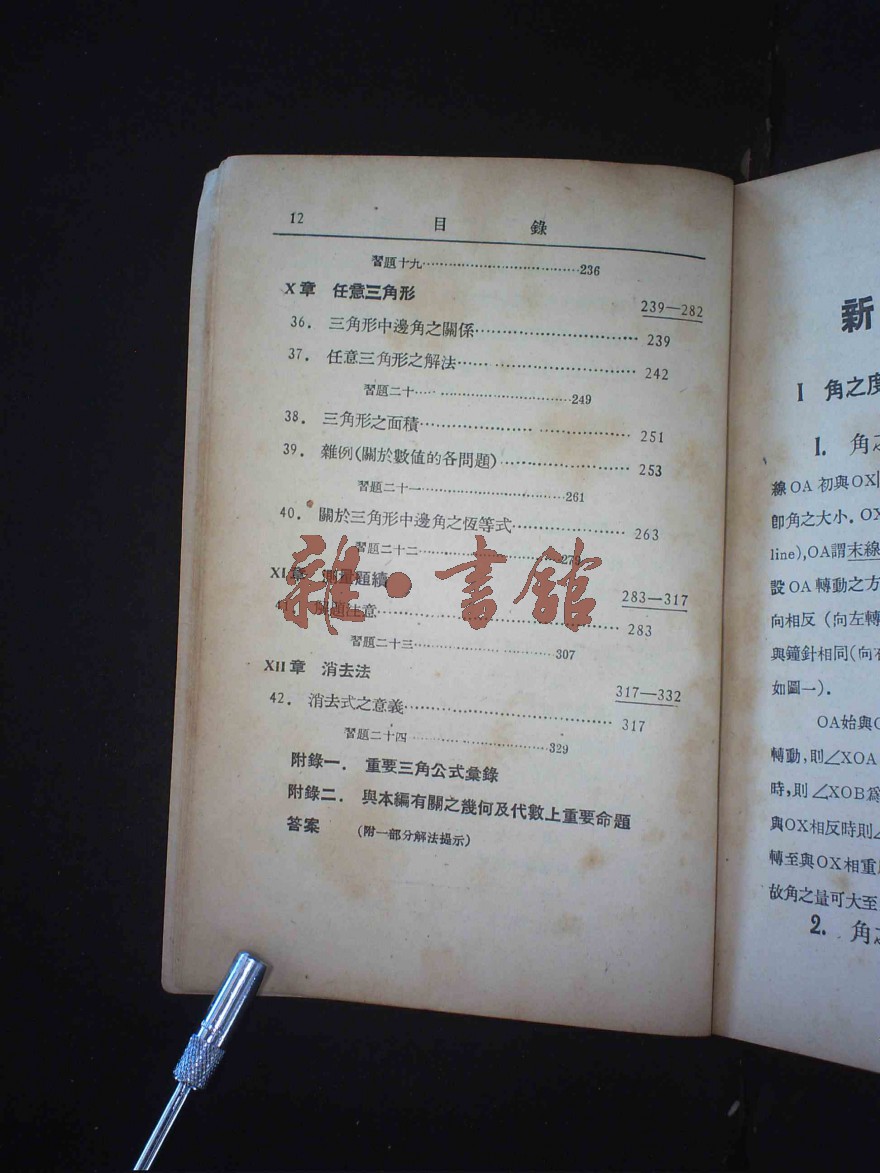 12 目錄
習題十九 236
X章 任意三角形 239—282
36. 三角形中邊角之關係 239
37. 任意三角形之解法 242
習題二十 249
38. 三角形之面積 251
39. 雜例(關於數値的各問題) 253
習題二十一 261
40. 關於三角形中邊角之恆等式 263
習題二十二 279
雜·書館
XI章 測量題續 283—317
41. 注意 283
習題二十三 307
XII章 消去法 317—332
42. 消去式之意義 317
習題二十四 329
附錄一. 重要三角公式彙錄
附錄二. 與本編有關之幾何及代數上重要命題
答案 (附一部分解法提示)
新
I 角之度
1. 角之
線OA初與OX
卽角之大小. OX
line), OA謂末線
設OA轉動之方
向相反(向左轉
與鐘針相同(向右
如圖一).
OA始與O
轉動,則∠XOA
時,則∠XOB爲
與OX相反時則∠
轉至與OX相重
故角之量可大至
2. 角之